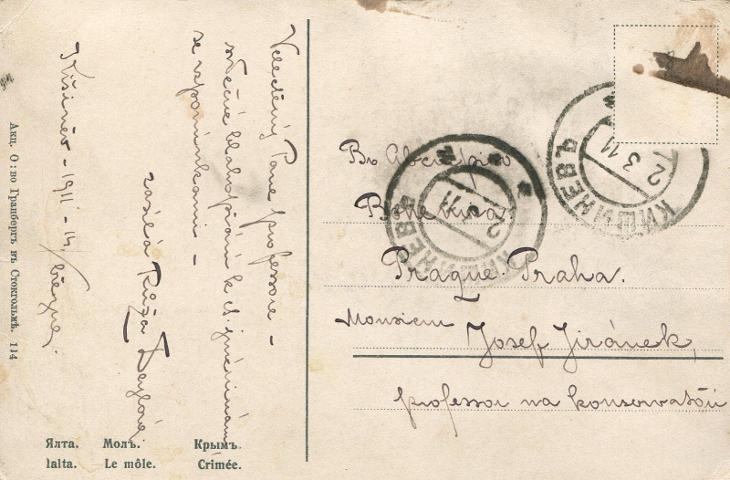 Velectěný Pane professore -
srdečné blahopřání k
se vzpomínkami -
zasílá Růža
Kišiněv - 1911 - 14/ března.
Акц. О:во Гранбергъ въ Стокгольмѣ. 114
Ялта. Молъ. Крымъ.
Ialta. Le môle. Crimée.
Въ
Bohemia
Prague. Praha.
Monsieur Josef Jiránek,
professor na konservatoři
КИШИНЕВЪ
2 3 11
КИШИНЕВЪ
2 3 11